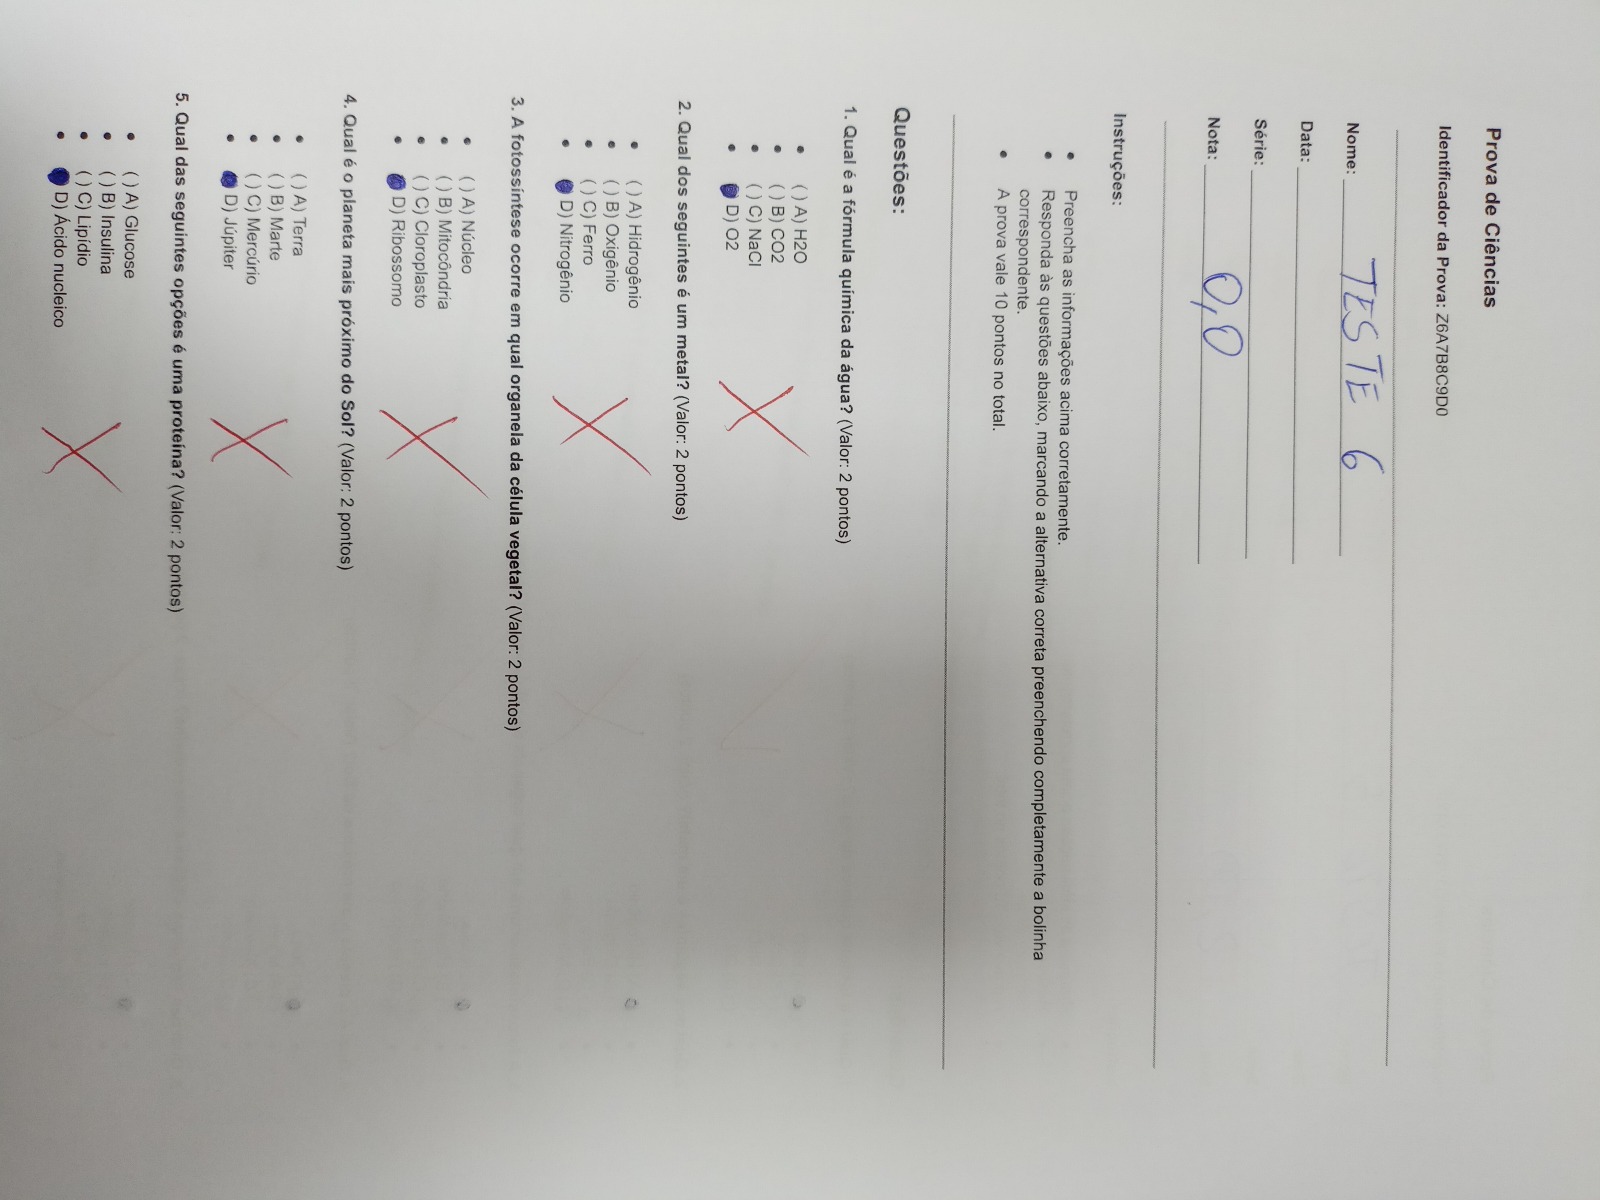 Prova de Ciências
Identificador da Prova: Z6A7B8C9D0
Nome: TESTE 6
Data:
Série:
Nota: 0,0
Instruções:
• Preencha as informações acima corretamente.
• Responda às questões abaixo, marcando a alternativa correta preenchendo completamente a bolinha
correspondente.
• A prova vale 10 pontos no total.
Questões:
1. Qual é a fórmula química da água? (Valor: 2 pontos)
• ( ) A) H2O
• ( ) B) CO2
• ( ) C) NaCl
• D) O2
2. Qual dos seguintes é um metal? (Valor: 2 pontos)
• ( ) A) Hidrogênio
• ( ) B) Oxigênio
• ( ) C) Ferro
• D) Nitrogênio
3. A fotossíntese ocorre em qual organela da célula vegetal? (Valor: 2 pontos)
• ( ) A) Núcleo
• ( ) B) Mitocôndria
• ( ) C) Cloroplasto
• D) Ribossomo
4. Qual é o planeta mais próximo do Sol? (Valor: 2 pontos)
• ( ) A) Terra
• ( ) B) Marte
• ( ) C) Mercúrio
• D) Júpiter
5. Qual das seguintes opções é uma proteína? (Valor: 2 pontos)
• ( ) A) Glucose
• ( ) B) Insulina
• ( ) C) Lipídio
• D) Ácido nucleico